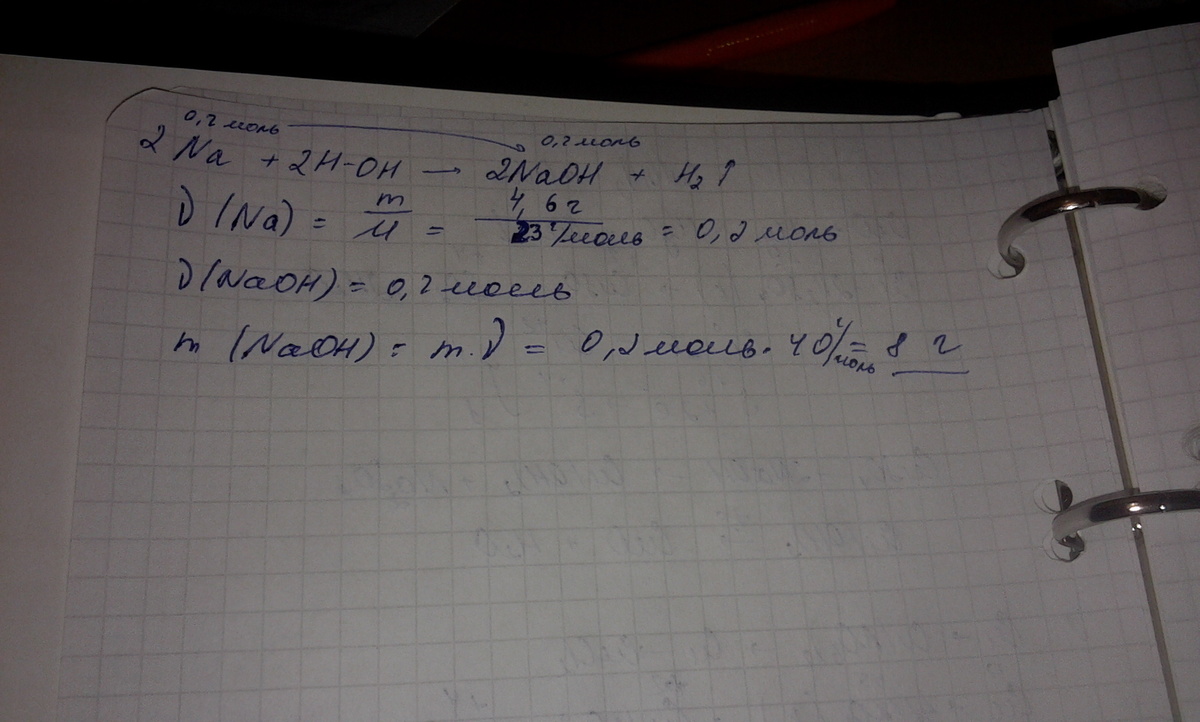 0,2 моль 0,2 моль
2Na + 2H-OH → 2NaOH + H₂↑
ν(Na) = m/M = 4,6 г / 23 г/моль = 0,2 моль
ν(NaOH) = 0,2 моль
m (NaOH) = m·ν = 0,2 моль · 40 г/моль = 8 г